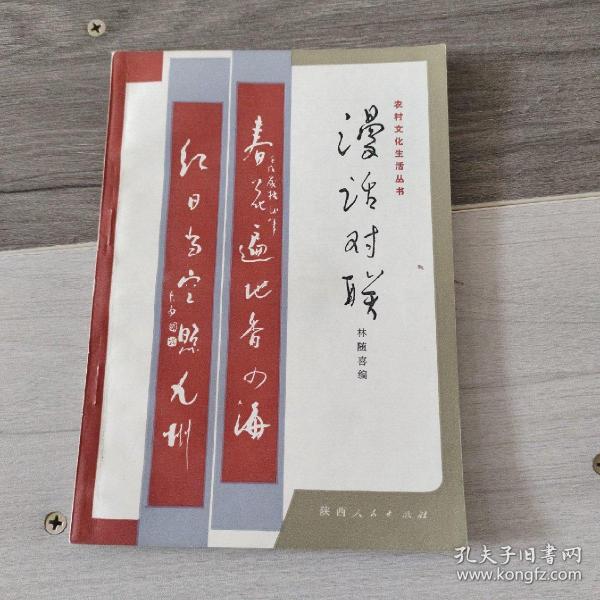 农村文化生活丛书
漫话对联
林随喜编
春花遍地香四海
红日当空照九州
陕西人民出版社
孔夫子旧书网
www.kongfz.com